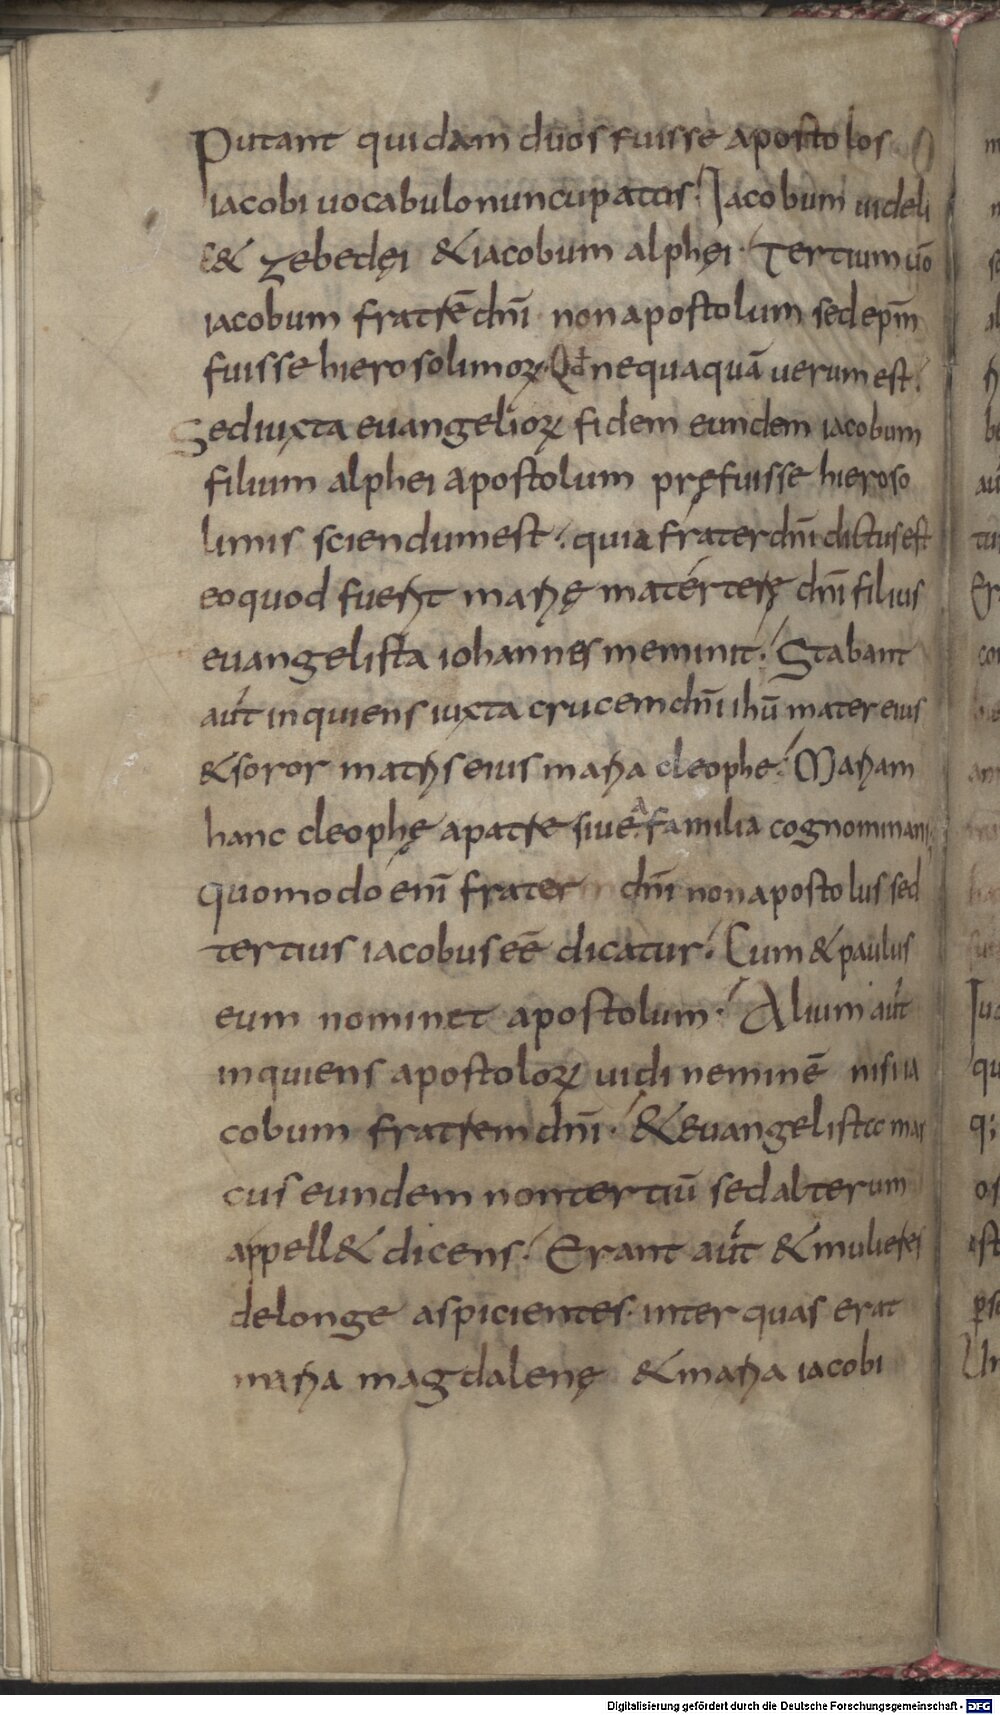 Putant quidam duos fuisse apostolos
iacobi uocabulo nuncupatos. Iacobum uideli
c& zebedęi & iacobum alphęi. Tertium uō
iacobum fratrē dn̄i non apostolum sed ep̄m
fuisse hierosolimoꝝ. Qd̄ nequaquā uerum est.
Sed iuxta euangelioꝝ fidem eundem iacobum
filium alphei apostolum pręfuisse hieroso
limis sciendum est. quia frater dn̄i dictus est
eo quod fuerit marię matertere dn̄i filius
euangelista iohannes meminit. Stabant
aut̄ inquiens iuxta crucem dn̄i ihū mater eius
& soror matris eius maria cleophe. Mariam
hanc cleophę a patre siue a familia cognominans
quomodo enī frater dn̄i non apostolus sed
tertius iacobus eē dicatur. Cum & paulus
eum nominet apostolum. Alium aut̄
inquiens apostoloꝝ uidi neminē nisi ia
cobum fratrem dn̄i. & euangelista mar
cus eundem non tertiū sed alterum
appell& dicens. Erant aut̄ & mulieres
de longe aspicientes. inter quas erat
maria magdalenę & maria iacobi
Digitalisierung gefördert durch die Deutsche Forschungsgemeinschaft - DFG